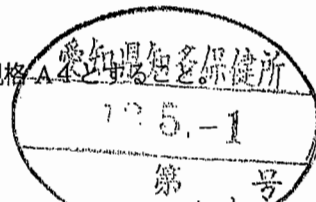 格A4とすること。
愛知県知多保健所
5.-1
第 号